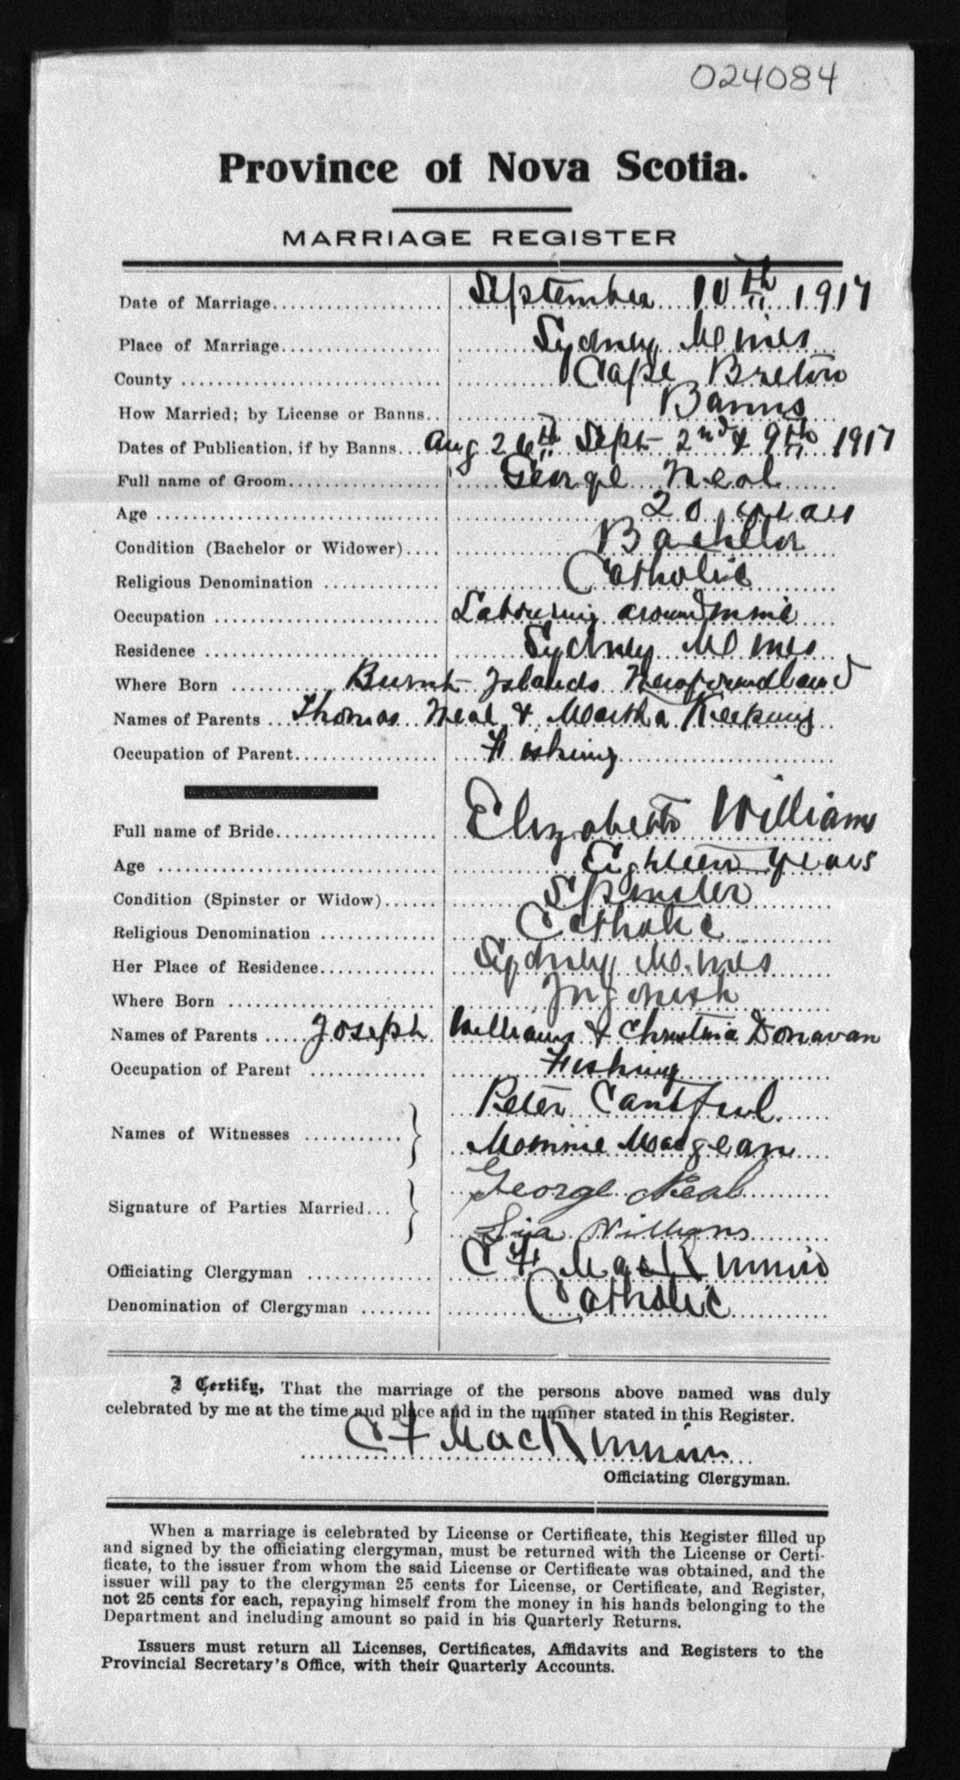 024084
Province of Nova Scotia.
MARRIAGE REGISTER
Date of Marriage September 10th 1917
Place of Marriage Sydney Mines
County Cape Breton
How Married; by License or Banns Banns
Dates of Publication, if by Banns Aug 26th Sept 2nd & 9th 1917
Full name of Groom George Neal
Age 20 years
Condition (Bachelor or Widower) Bachelor
Religious Denomination Catholic
Occupation Labouring around mine
Residence Sydney Mines
Where Born Burnt Islands Newfoundland
Names of Parents Thomas Neal & Martha Keeping
Occupation of Parent Fishing
Full name of Bride Elizabeth Williams
Age Eighteen years
Condition (Spinster or Widow) Spinster
Religious Denomination Catholic
Her Place of Residence Sydney Mines
Where Born Ingonish
Names of Parents Joseph Williams & Christina Donavan
Occupation of Parent Fishing
Names of Witnesses Peter
Signature of Parties Married George Neal
Williams
Officiating Clergyman C F MacKinnon
Denomination of Clergyman Catholic
I Certify, That the marriage of the persons above named was duly
celebrated by me at the time and place and in the manner stated in this Register.
C F MacKinnon
Officiating Clergyman.
When a marriage is celebrated by License or Certificate, this Register filled up
and signed by the officiating clergyman, must be returned with the License or Certi-
ficate, to the issuer from whom the said License or Certificate was obtained, and the
issuer will pay to the clergyman 25 cents for License, or Certificate, and Register,
not 25 cents for each, repaying himself from the money in his hands belonging to the
Department and including amount so paid in his Quarterly Returns.
Issuers must return all Licenses, Certificates, Affidavits and Registers to the
Provincial Secretary's Office, with their Quarterly Accounts.